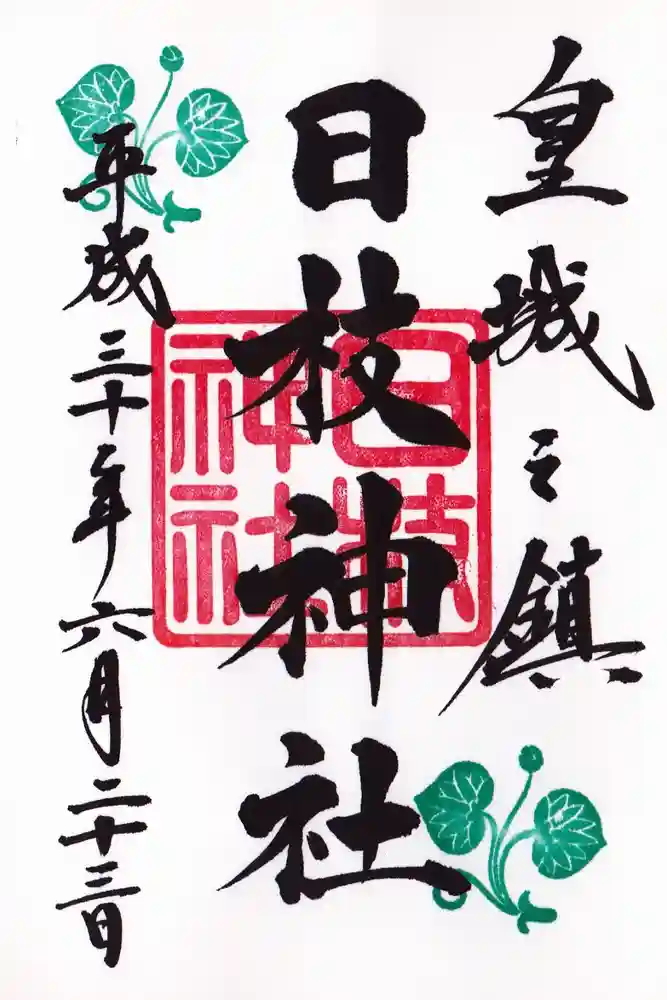 皇城之鎮
日枝神社
平成三十年六月二十三日
日枝神社